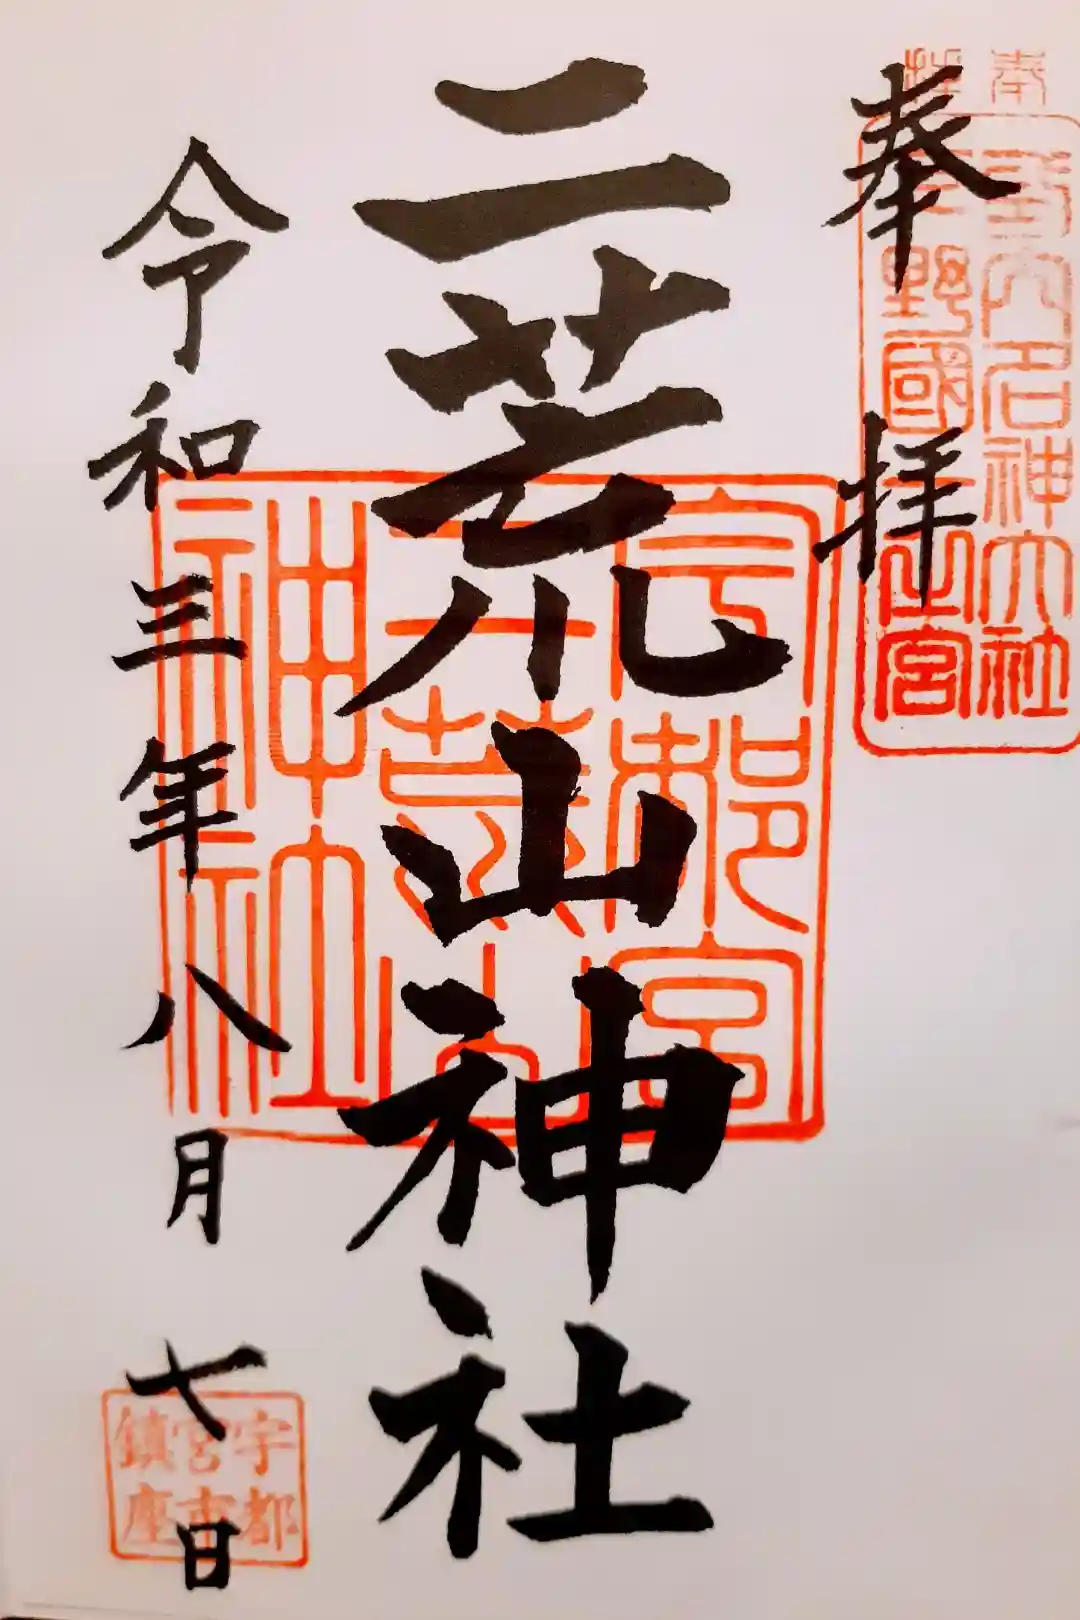 奉拝
式内名神大社
下野國一之宮
二荒山神社
宇都宮
二荒山
神社
令和三年八月七日
宇都
宮市
鎮座